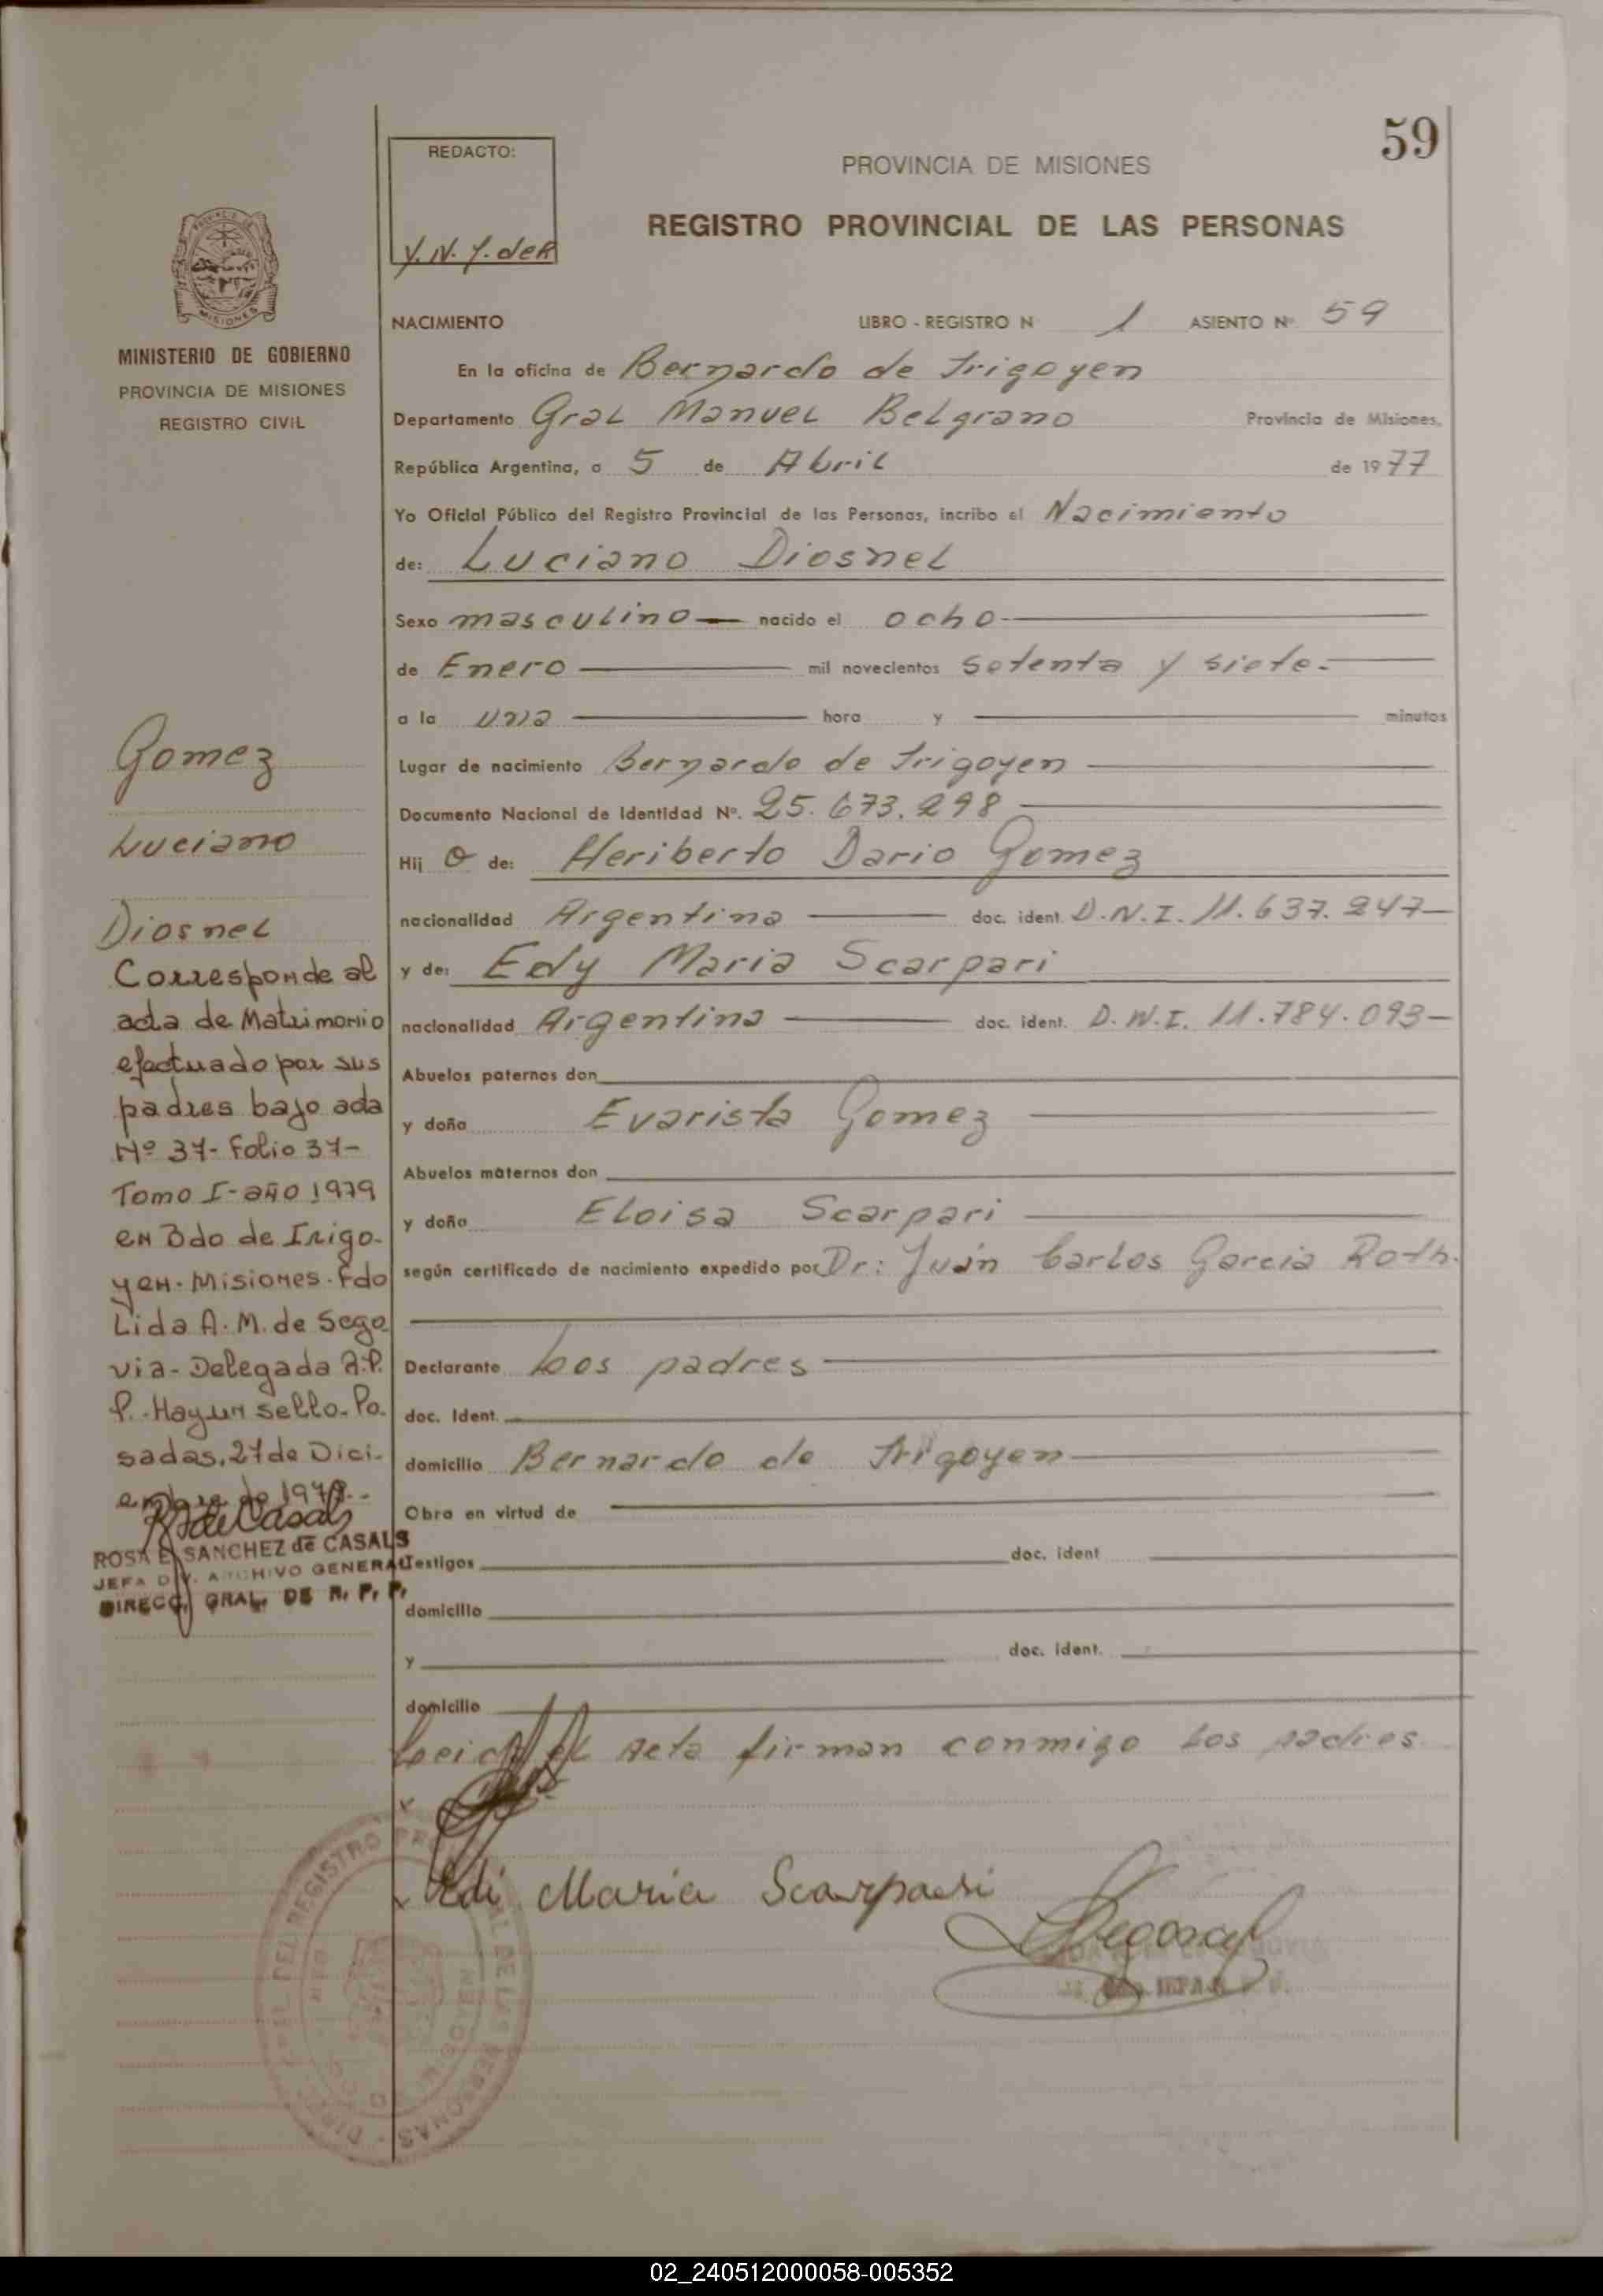 59
REDACTO:
PROVINCIA DE MISIONES
REGISTRO PROVINCIAL DE LAS PERSONAS
MISIONES
MINISTERIO DE GOBIERNO
PROVINCIA DE MISIONES
REGISTRO CIVIL
NACIMIENTO LIBRO - REGISTRO N 1 ASIENTO Nº 59
En la oficina de Bernardo de Irigoyen
Departamento Gral Manuel Belgrano Provincia de Misiones,
República Argentina, a 5 de Abril de 1977
Yo Oficial Público del Registro Provincial de las Personas, incribo el Nacimiento
de: Luciano Diosnel
Sexo masculino nacido el ocho
de Enero mil novecientos setenta y siete.
a la una hora y minutos
Lugar de nacimiento Bernardo de Irigoyen
Documento Nacional de Identidad Nº. 25.673.298
Hij o de: Heriberto Dario Gomez
nacionalidad Argentina doc. ident. D.N.I. 11.637.247
y de: Edy Maria Scarpari
nacionalidad Argentina doc. ident. D.N.I. 11.784.093
Abuelos paternos don
y doña Evarista Gomez
Abuelos maternos don
y doña Eloisa Scarpari
según certificado de nacimiento expedido por Dr: Juan Carlos Garcia Roth.
Declarante Los padres
doc. Ident.
domicilio Bernardo de Irigoyen
Obra en virtud de
Testigos doc. ident
domicilio
y doc. ident.
domicilio
Leida el acta firman conmigo los padres
Edi Maria Scarpari
Gomez
Luciano
Diosnel
Corresponde al
acta de Matrimonio
efectuado por sus
padres bajo acta
Nº 37- Folio 37-
Tomo I- año 1979
en Bdo de Irigo-
yen. Misiones. Fdo
Lida A. M. de Sego
via- Delegada R.P.
P.- Hay un sello- Po.
sadas, 27 de Dici-
embre de 1979.-
ROSA E. SANCHEZ de CASALS
JEFA DIV. ARCHIVO GENERAL
DIRECC. GRAL. DE R. P. P.
02_240512000058-005352